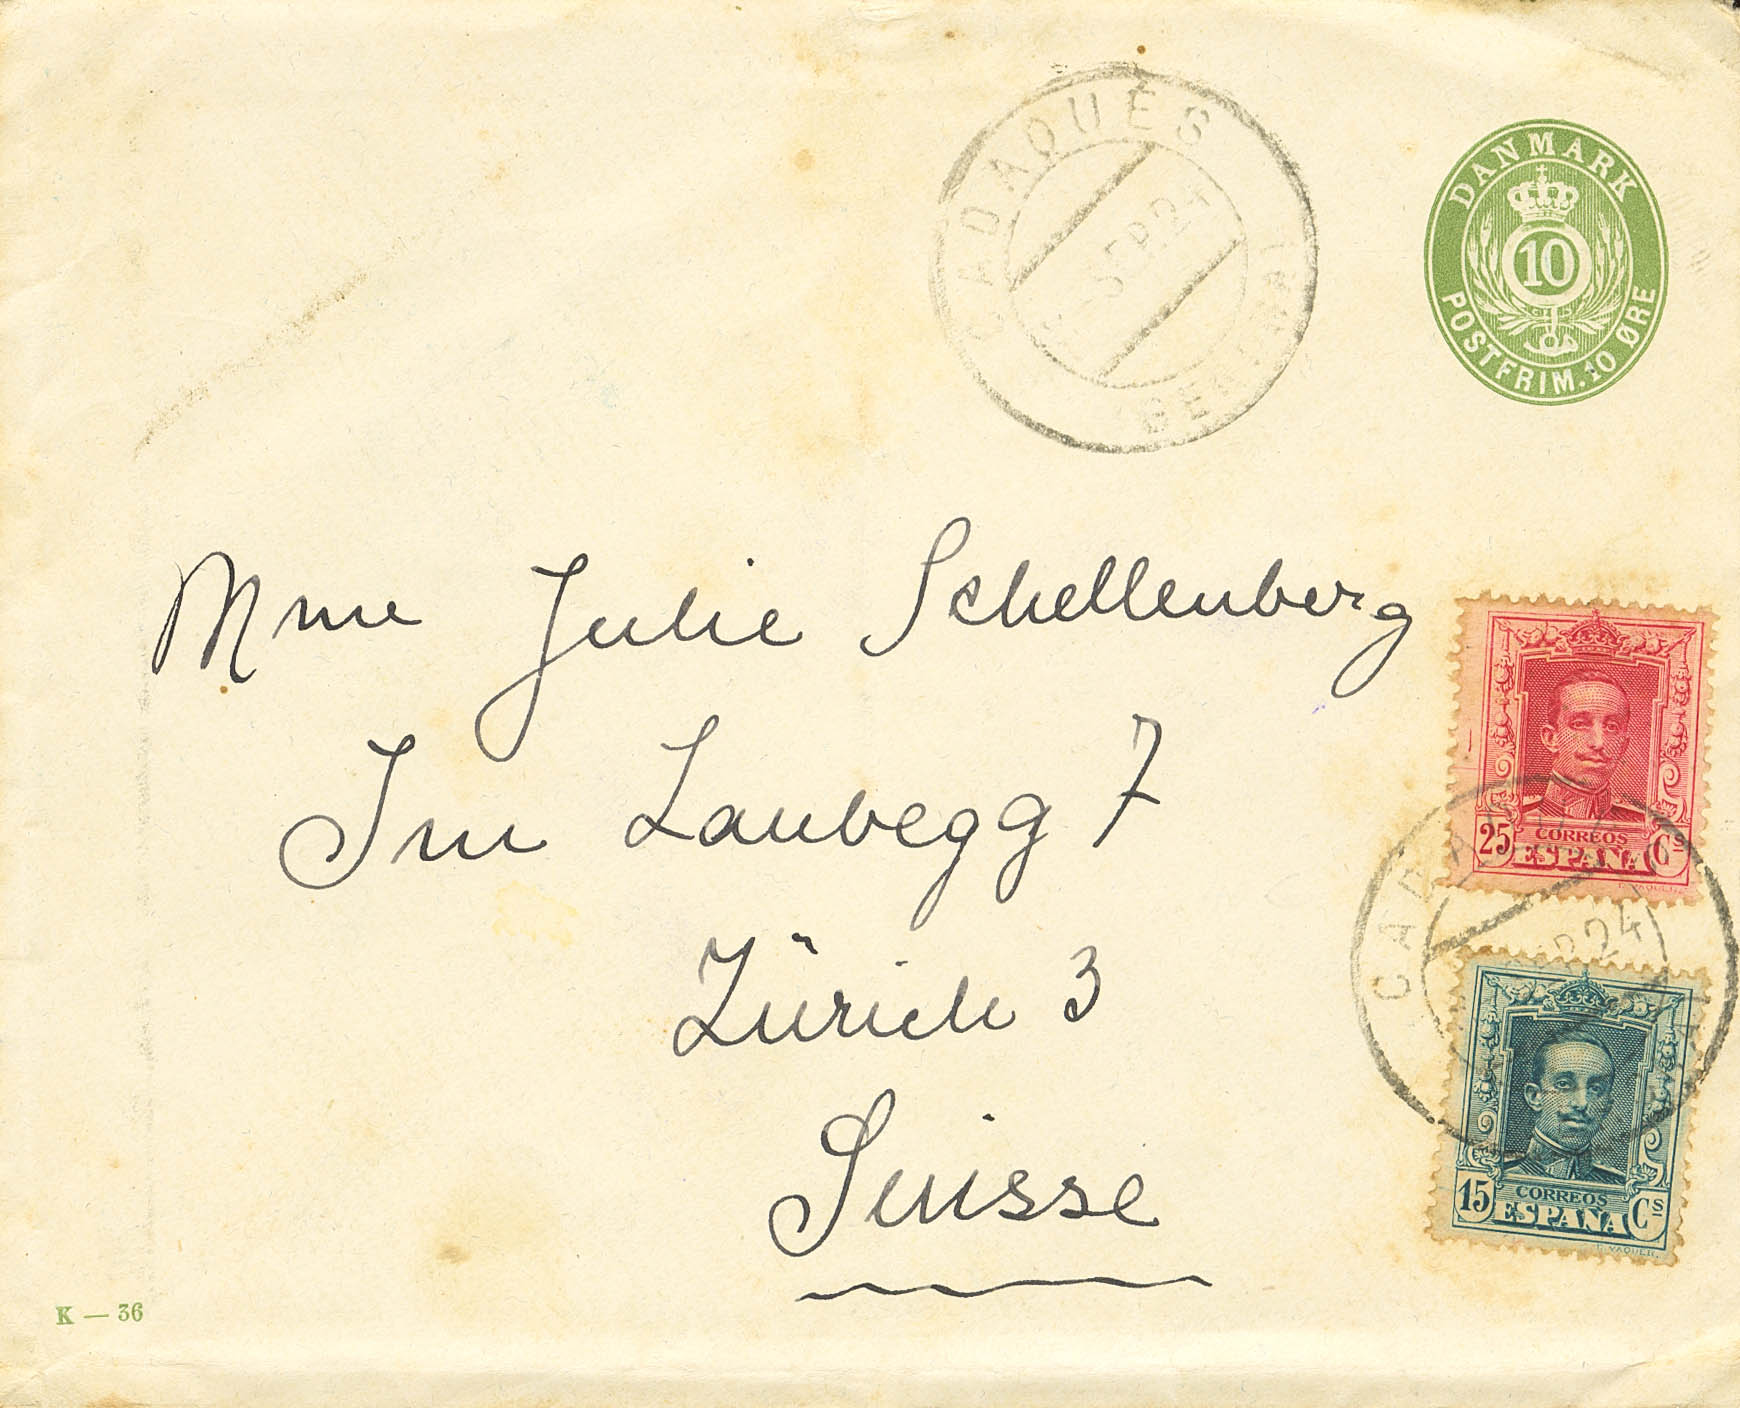 CADAQUÉS
SEP.24
DANMARK
10
POSTFRIM. 10 ØRE
Mme Julie Schellenberg
Im Laubegg 7
Zürich 3
Suisse
25 CORREOS Cs
ESPAÑA
SEP.24
15 CORREOS Cs
ESPAÑA
K — 36